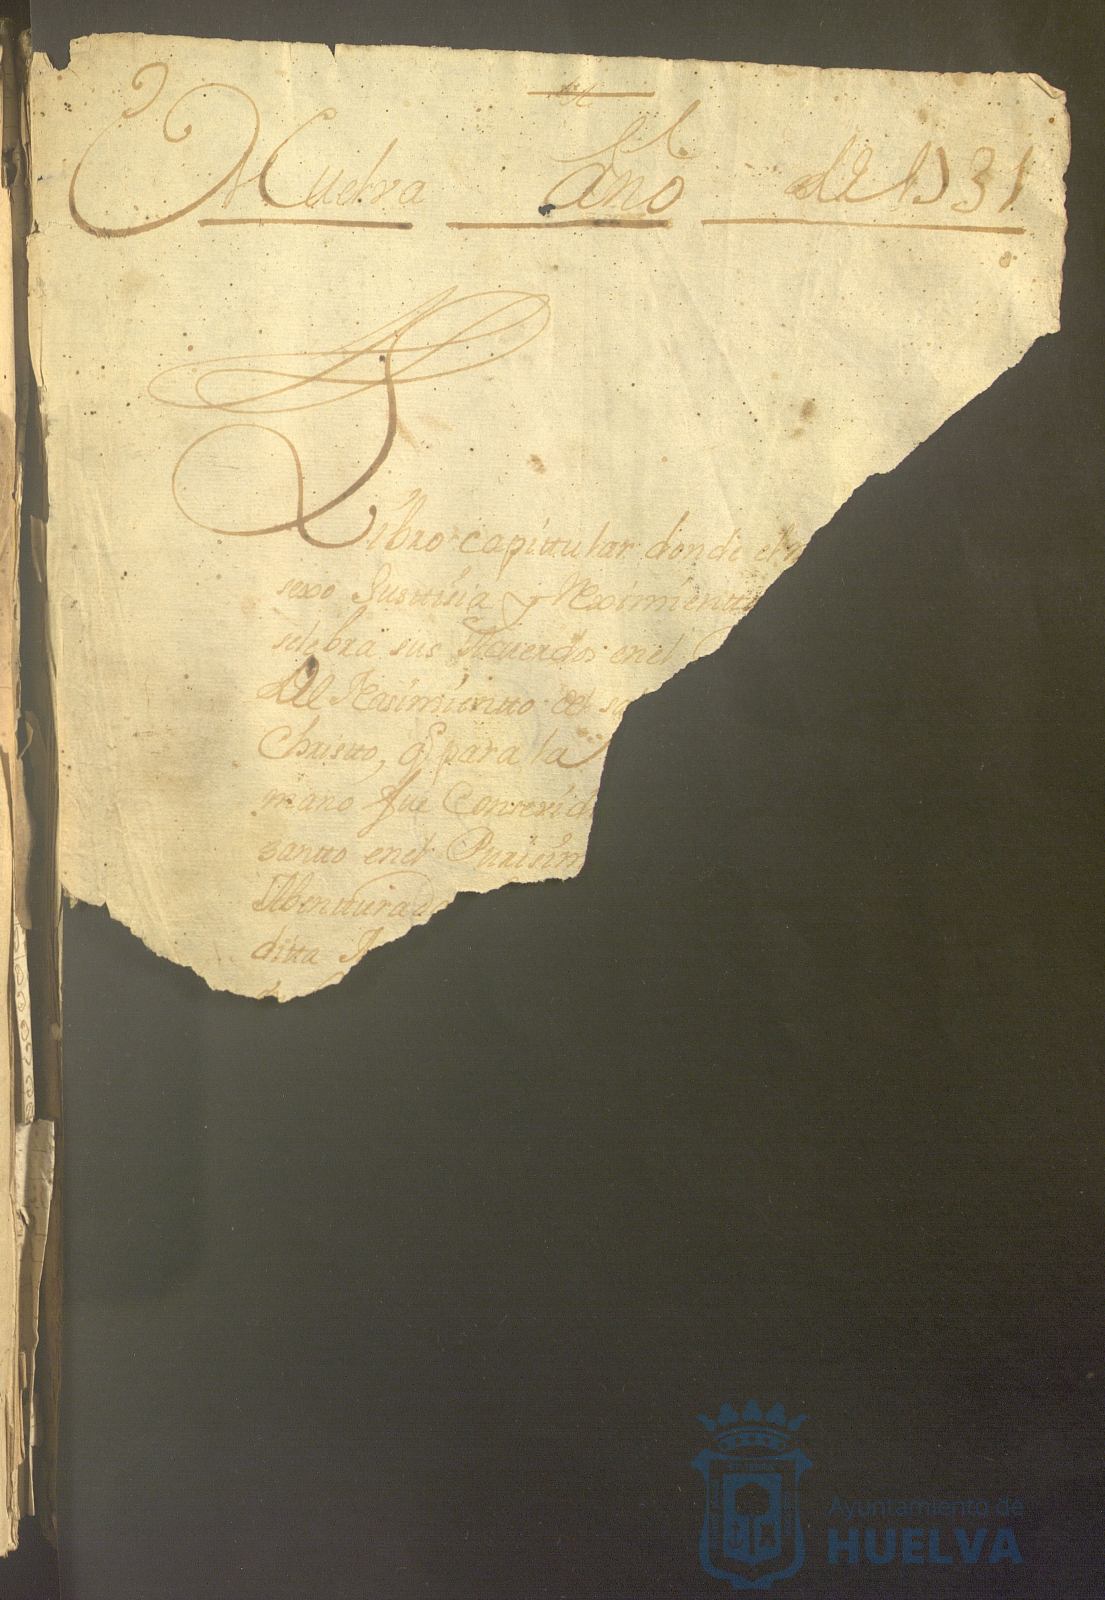 Huelva Año de 1731
Libro capittular donde el
sexo Justtisia y Reximientto
selebra sus Acuerdos en el
del Nasimientto del
Christto, q para la
mano fue Consevid
santto en el Purisim
Abentturado
ditta
Ayuntamiento de
HUELVA